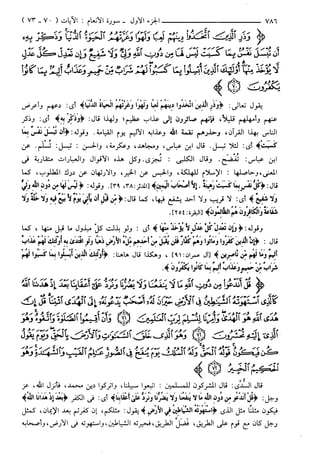 ٧٨٦ الجزء الأول - سورة الأنعام: الآيات (٧٠ - ٧٣)
﴿وَذَرِ الَّذِينَ اتَّخَذُوا دِينَهُمْ لَعِبًا وَلَهْوًا وَغَرَّتْهُمُ الْحَيَوٰةُ الدُّنْيَا وَذَكِّرْ بِهِ
أَن تُبْسَلَ نَفْسٌ بِمَا كَسَبَتْ لَيْسَ لَهَا مِن دُونِ اللَّهِ وَلِيٌّ وَلَا شَفِيعٌ وَإِن تَعْدِلْ كُلَّ عَدْلٍ
لَّا يُؤْخَذْ مِنْهَا أُولَٰئِكَ الَّذِينَ أُبْسِلُوا بِمَا كَسَبُوا لَهُمْ شَرَابٌ مِّنْ حَمِيمٍ وَعَذَابٌ أَلِيمٌ بِمَا كَانُوا
يَكْفُرُونَ
يقول تعالى: ﴿وَذَرِ الَّذِينَ اتَّخَذُوا دِينَهُمْ لَعِبًا وَلَهْوًا وَغَرَّتْهُمُ الْحَيَوٰةُ الدُّنْيَا﴾ أي: دعهم وأعرض
عنهم وأمهلهم قليلاً، فإنهم صائرون إلى عذاب عظيم؛ ولهذا قال: ﴿وَذَكِّرْ بِهِ﴾ أي: وذكر
الناس بهذا القرآن، وحذرهم نقمة الله وعذابه الأليم يوم القيامة. وقوله: ﴿أَن تُبْسَلَ نَفْسٌ بِمَا
كَسَبَتْ﴾ أي: لئلا تبسل. قال ابن عباس، ومجاهد، وعكرمة، والحسن: تبسل: تُسلَم. عن
ابن عباس: تفتضح. وقال الكلبي: تُجزى. وكل هذه الأقوال والعبارات متقاربة في
المعنى، وحاصلها: الإسلام للهلكة، والحبس عن الخير، والارتهان عن درك المطلوب، كما
قال: ﴿كُلُّ نَفْسٍ بِمَا كَسَبَتْ رَهِينَةٌ إِلَّا أَصْحَابَ الْيَمِينِ﴾ [المدثر: ٣٨، ٣٩]. وقوله: ﴿لَيْسَ لَهَا مِن دُونِ اللَّهِ وَلِيٌّ
وَلَا شَفِيعٌ﴾ أي: لا قريب ولا أحد يشفع فيها، كما قال: ﴿مِّن قَبْلِ أَن يَأْتِيَ يَوْمٌ لَّا بَيْعٌ فِيهِ وَلَا خُلَّةٌ وَلَا
شَفَاعَةٌ وَالْكَافِرُونَ هُمُ الظَّالِمُونَ﴾ [البقرة: ٢٥٤].
وقوله: ﴿وَإِن تَعْدِلْ كُلَّ عَدْلٍ لَّا يُؤْخَذْ مِنْهَا﴾ أي: ولو بذلت كل مبذول ما قبل منها، كما
قال: ﴿إِنَّ الَّذِينَ كَفَرُوا وَمَاتُوا وَهُمْ كُفَّارٌ فَلَن يُقْبَلَ مِنْ أَحَدِهِم مِّلْءُ الْأَرْضِ ذَهَبًا وَلَوِ افْتَدَىٰ بِهِ أُولَٰئِكَ لَهُمْ عَذَابٌ
أَلِيمٌ وَمَا لَهُم مِّن نَّاصِرِينَ﴾ [آل عمران: ٩١]، وهكذا قال هاهنا: ﴿أُولَٰئِكَ الَّذِينَ أُبْسِلُوا بِمَا كَسَبُوا لَهُمْ
شَرَابٌ مِّنْ حَمِيمٍ وَعَذَابٌ أَلِيمٌ بِمَا كَانُوا يَكْفُرُونَ﴾.
﴿قُلْ أَنَدْعُوا مِن دُونِ اللَّهِ مَا لَا يَنفَعُنَا وَلَا يَضُرُّنَا وَنُرَدُّ عَلَىٰ أَعْقَابِنَا بَعْدَ إِذْ هَدَىٰنَا اللَّهُ
كَالَّذِي اسْتَهْوَتْهُ الشَّيَاطِينُ فِي الْأَرْضِ حَيْرَانَ لَهُ أَصْحَابٌ يَدْعُونَهُ إِلَى الْهُدَى ائْتِنَا قُلْ إِنَّ
هُدَى اللَّهِ هُوَ الْهُدَىٰ وَأُمِرْنَا لِنُسْلِمَ لِرَبِّ الْعَالَمِينَ ٧١ وَأَنْ أَقِيمُوا الصَّلَوٰةَ وَاتَّقُوهُ وَهُوَ
الَّذِي إِلَيْهِ تُحْشَرُونَ ٧٢ وَهُوَ الَّذِي خَلَقَ السَّمَاوَاتِ وَالْأَرْضَ بِالْحَقِّ وَيَوْمَ يَقُولُ
كُن فَيَكُونُ قَوْلُهُ الْحَقُّ وَلَهُ الْمُلْكُ يَوْمَ يُنفَخُ فِي الصُّورِ عَالِمُ الْغَيْبِ وَالشَّهَادَةِ وَهُوَ
الْحَكِيمُ الْخَبِيرُ ٧٣
قال السُّدِّي: قال المشركون للمسلمين: اتبعوا سبيلنا، واتركوا دين محمد، فأنزل الله، عز
وجل: ﴿قُلْ أَنَدْعُوا مِن دُونِ اللَّهِ مَا لَا يَنفَعُنَا وَلَا يَضُرُّنَا وَنُرَدُّ عَلَىٰ أَعْقَابِنَا﴾ أي: في الكفر ﴿بَعْدَ إِذْ هَدَىٰنَا اللَّهُ﴾
فيكون مثلنا مثل الذي ﴿اسْتَهْوَتْهُ الشَّيَاطِينُ فِي الْأَرْضِ﴾ يقول: مثلكم، إن كفرتم بعد الإيمان، كمثل
رجل كان مع قوم على الطريق، فضل الطريق، فحيرته الشياطين، واستهوته في الأرض، وأصحابه